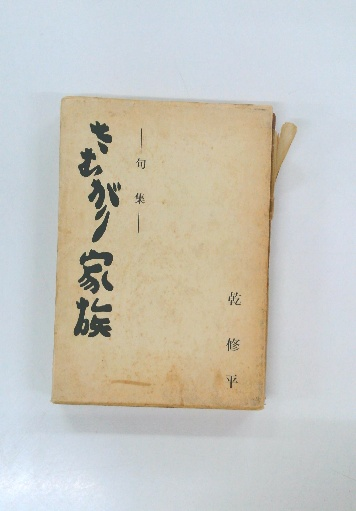 乾修平
―句集―
さむがり家族